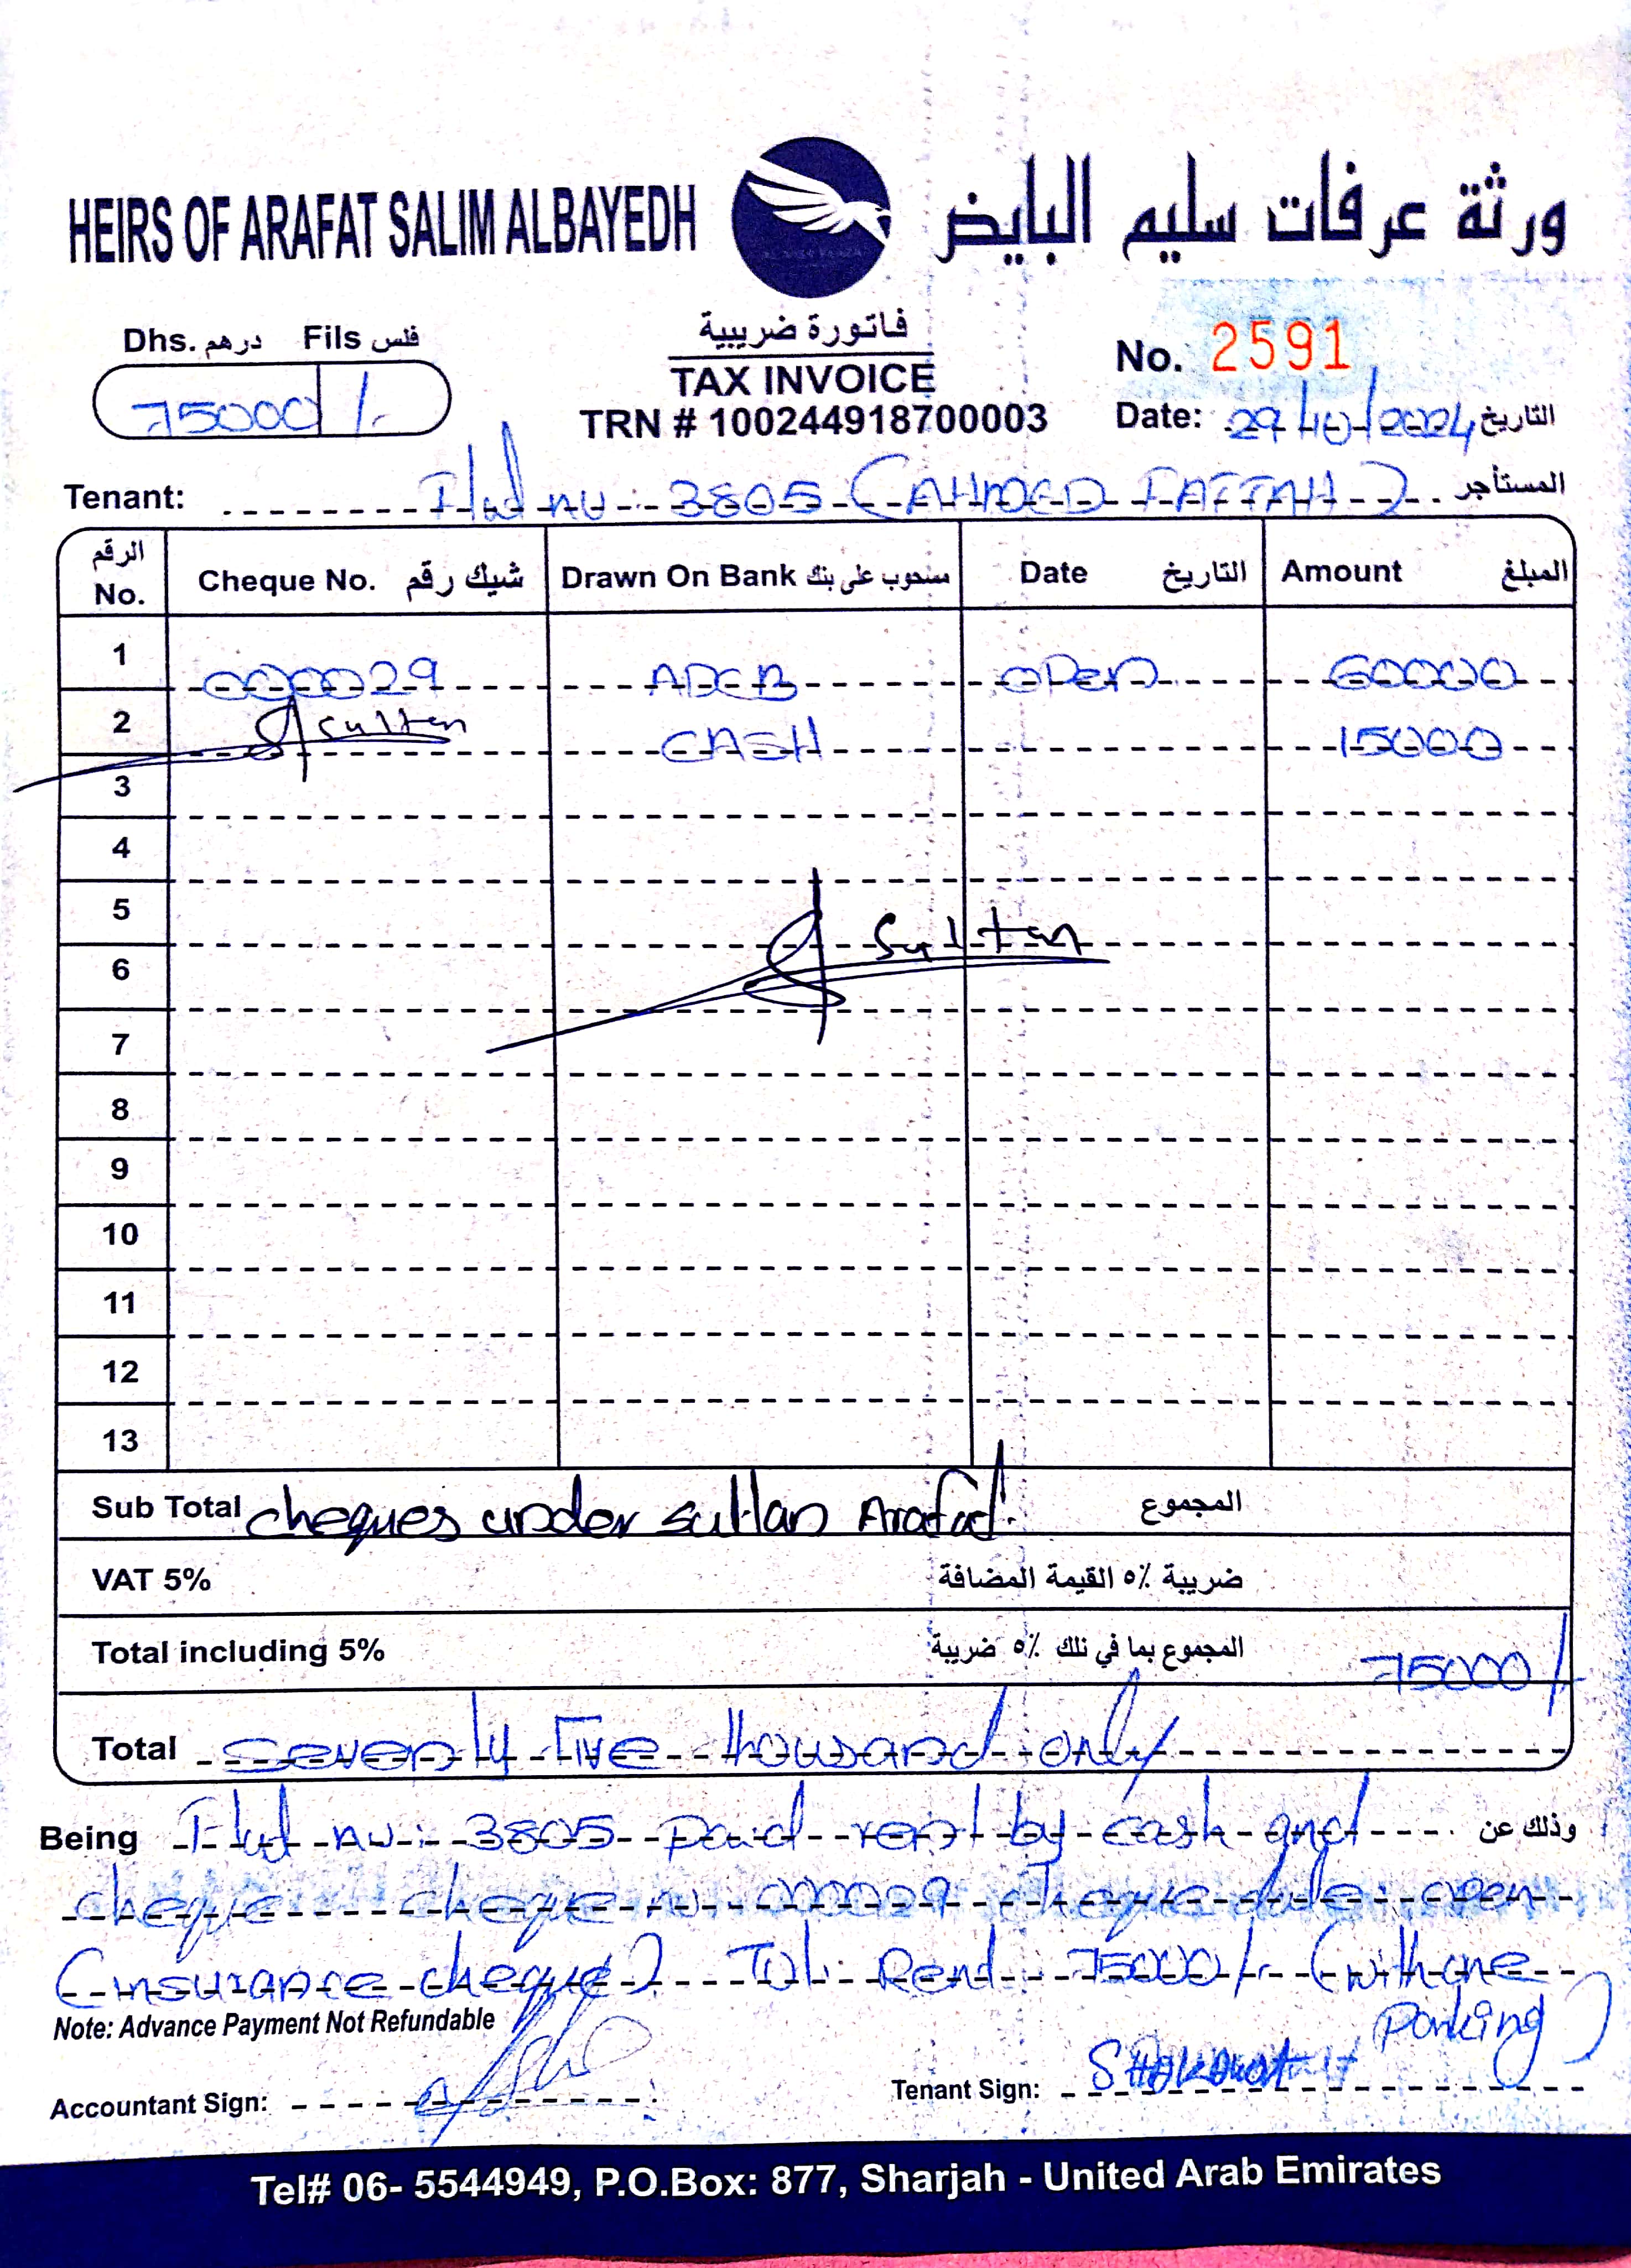 HEIRS OF ARAFAT SALIM ALBAYEDH ورثة عرفات سليم البايض
Dhs. درهم Fils فلس
75000 /-
فاتورة ضريبية
TAX INVOICE
TRN # 100244918700003
No. 2591
Date: 29/10/2024 التاريخ
Tenant: Flat no: 3805 (AHMED FATTAH) المستأجر
الرقم No. Cheque No. شيك رقم Drawn On Bank مسحوب على بنك Date التاريخ Amount المبلغ
1 000029 ADCB OPEN 60000
2 Sultan CASH 15000
3
4
5 Sultan
6
7
8
9
10
11
12
13
Sub Total cheques under sultan Arafat. المجموع
VAT 5% ضريبة ٥٪ القيمة المضافة
Total including 5% المجموع بما في ذلك ٥٪ ضريبة 75000/-
Total seventy five thousand only
Being Flat no: 3805 paid rent by cash and وذلك عن
cheque cheque no. 000029 cheque date: open
(insurance cheque) Rent 75000/- (with one
parking)
Note: Advance Payment Not Refundable
Accountant Sign:
Tenant Sign:
Tel# 06- 5544949, P.O.Box: 877, Sharjah - United Arab Emirates